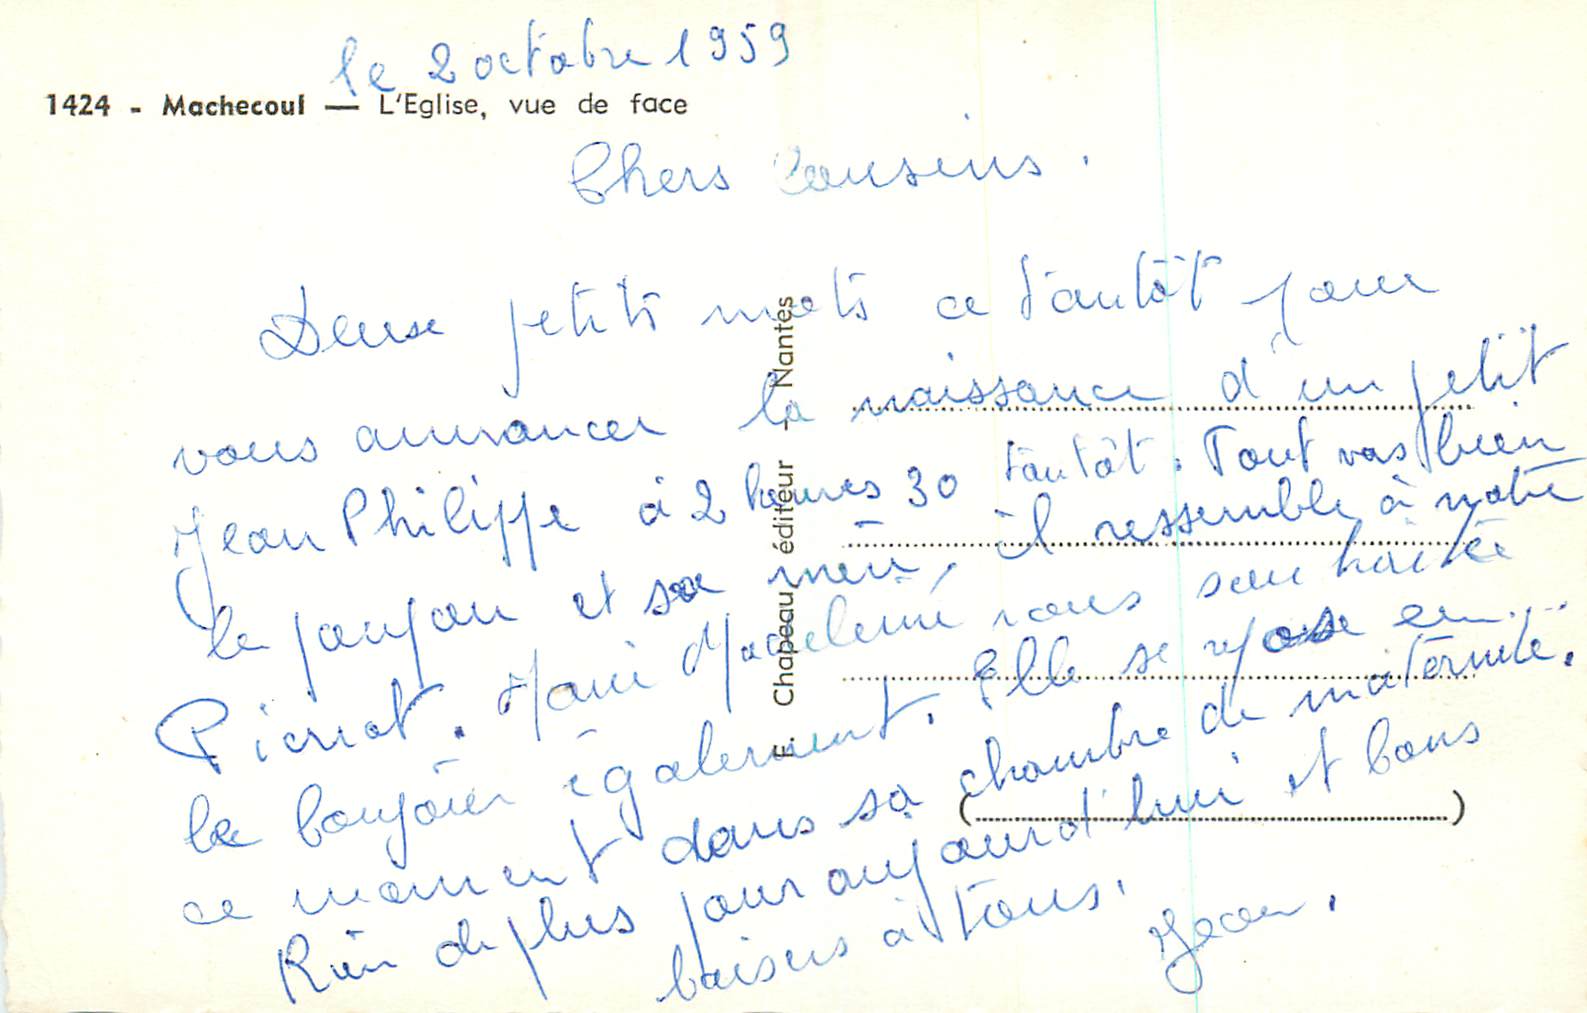 le 2 octobre 1959
1424 - Machecoul — L'Eglise, vue de face
Chers Cousins.
Deux petits mots ce tantôt pour
vous annoncer la naissance d'un petit
Jean Philippe à 2 heures 30 tantôt. Tout vas bien
le poupon et sa mère, il ressemble à notre
Pierrot. Marie Madeleine vous souhaite
le bonjour également. Elle se repose en
ce moment dans sa chambre de maternité.
Rien de plus pour aujourd'hui et bons
baisers à tous.
Jean.
F. Chapeau, éditeur - Nantes
( )